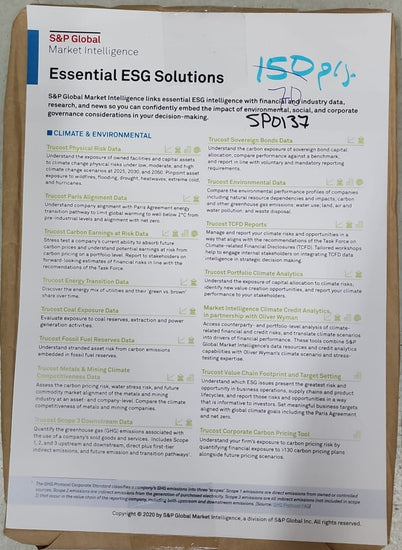 S&P Global
Market Intelligence
150 pcs.
70
SP0137
Essential ESG Solutions
S&P Global Market Intelligence links essential ESG intelligence with financial and industry data,
research, and news so you can confidently embed the impact of environmental, social, and corporate
governance considerations in your decision-making.
CLIMATE & ENVIRONMENTAL
Trucost Physical Risk Data
Understand the exposure of owned facilities and capital assets
to climate change physical risks under low, moderate, and high
climate change scenarios at 2025, 2030, and 2050. Pinpoint asset
exposure to wildfires, flooding, drought, heatwaves, extreme cold,
and hurricanes.
Trucost Paris Alignment Data
Understand company alignment with Paris Agreement energy
transition pathway to limit global warming to well below 2°C from
pre-industrial levels and alignment with net zero.
Trucost Carbon Earnings at Risk Data
Stress test a company's current ability to absorb future
carbon prices and understand potential earnings at risk from
carbon pricing on a portfolio level. Report to stakeholders on
forward-looking estimates of financial risks in line with the
recommendations of the Task Force.
Trucost Energy Transition Data
Discover the energy mix of utilities and their 'green vs. brown'
share over time.
Trucost Coal Exposure Data
Evaluate exposure to coal reserves, extraction and power
generation activities.
Trucost Fossil Fuel Reserves Data
Understand stranded asset risk from carbon emissions
embedded in fossil fuel reserves.
Trucost Metals & Mining Climate
Competitiveness Data
Assess the carbon pricing risk, water stress risk, and future
commodity market alignment of the metals and mining
industry at an asset- and company-level. Compare the climate
competitiveness of metals and mining companies.
Trucost Scope 3 Downstream Data
Quantify the greenhouse gas (GHG) emissions associated with
the use of a company's sold goods and services. Includes Scope
1, 2, and 3 upstream and downstream, direct plus first-tier
indirect emissions, and future emission and transition pathways¹.
Trucost Sovereign Bonds Data
Understand the carbon exposure of sovereign bond capital
allocation, compare performance against a benchmark,
and report in line with voluntary and mandatory reporting
requirements.
Trucost Environmental Data
Compare the environmental performance profiles of companies
including natural resource dependencies and impacts; carbon
and other greenhouse gas emissions; water use; land, air and
water pollution; and waste disposal.
Trucost TCFD Reports
Manage and report your climate risks and opportunities in a
way that aligns with the recommendations of the Task Force on
Climate-related Financial Disclosures (TCFD). Tailored workshops
help to engage internal stakeholders on integrating TCFD data
intelligence in strategic decision making.
Trucost Portfolio Climate Analytics
Understand the exposure of capital allocation to climate risks,
identify new value creation opportunities, and report your climate
performance to your stakeholders.
Market Intelligence Climate Credit Analytics,
in partnership with Oliver Wyman
Access counterparty- and portfolio-level analysis of climate-
related financial and credit risks, and translate climate scenarios
into drivers of financial performance. These tools combine S&P
Global Market Intelligence's data resources and credit analytics
capabilities with Oliver Wyman's climate scenario and stress-
testing expertise.
Trucost Value Chain Footprint and Target Setting
Understand which ESG issues present the greatest risk and
opportunity in business operations, supply chains and product
lifecycles, and report those risks and opportunities in a way
that is informative to investors. Set meaningful business targets
aligned with global climate goals including the Paris Agreement
and net zero.
Trucost Corporate Carbon Pricing Tool
Understand your firm's exposure to carbon pricing risk by
quantifying financial exposure to >130 carbon pricing plans
alongside future pricing scenarios.
¹ The GHG Protocol Corporate Standard classifies a company's GHG emissions into three 'scopes'. Scope 1 emissions are direct emissions from owned or controlled
sources. Scope 2 emissions are indirect emissions from the generation of purchased electricity. Scope 3 emissions are all indirect emissions (not included in scope
2) that occur in the value chain of the reporting company, including both upstream and downstream emissions. (Source: GHG Protocol FAQ)
Copyright © 2020 by S&P Global Market Intelligence, a division of S&P Global Inc. All rights reserved.